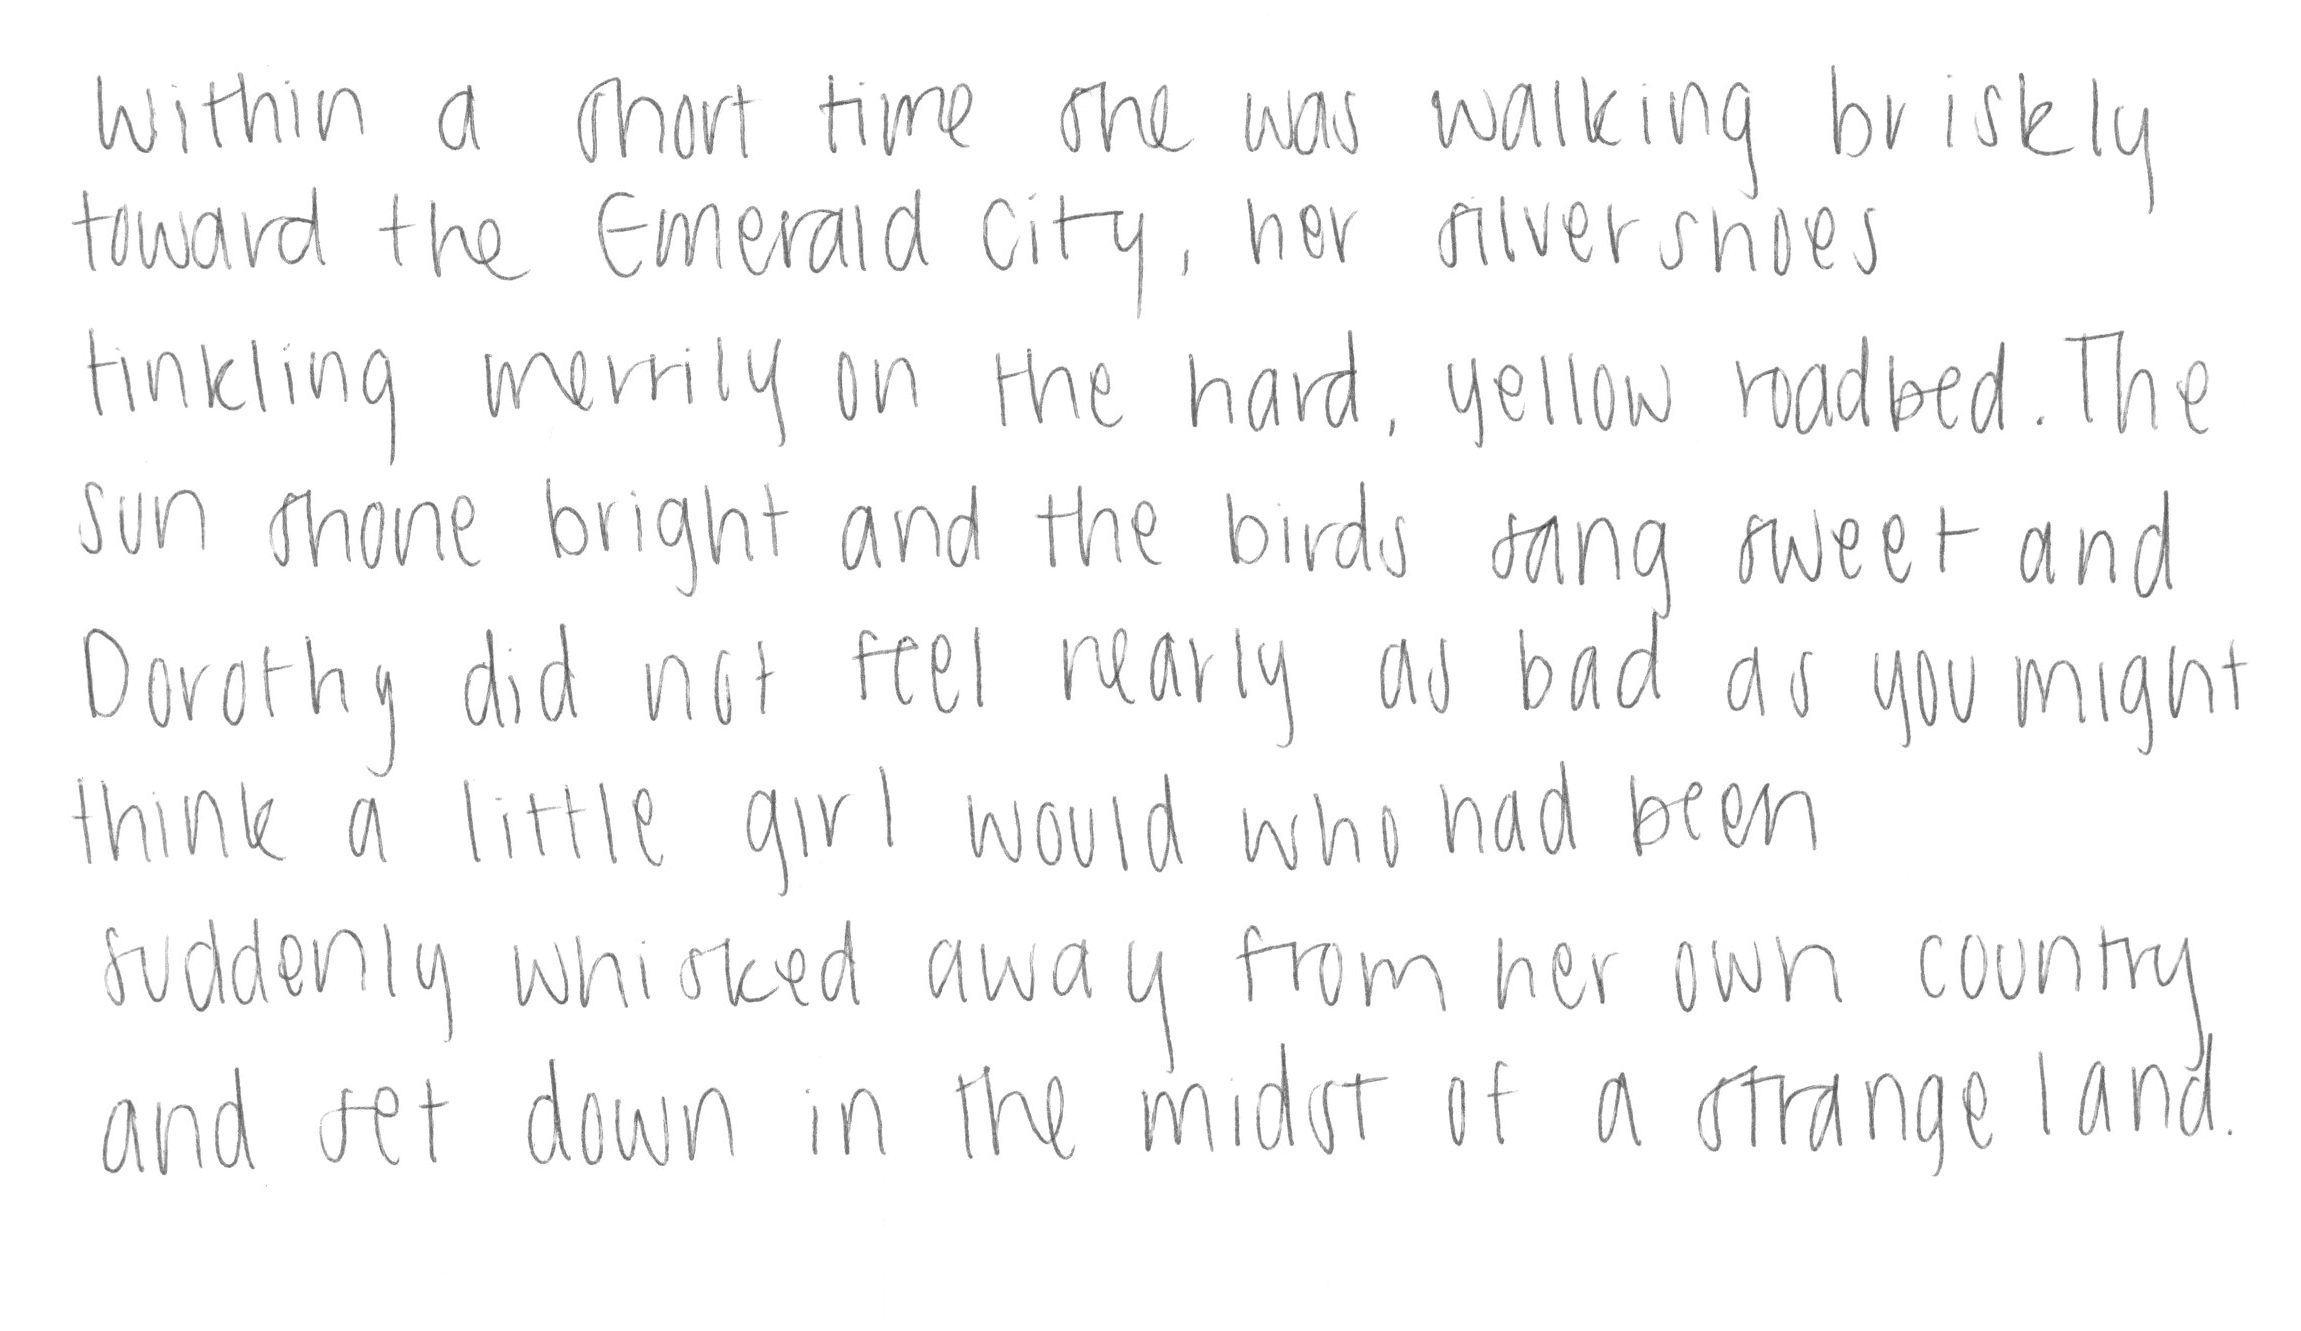 Within a short time she was walking briskly
toward the Emerald City, her silver shoes
tinkling merrily on the hard, yellow roadbed. The
sun shone bright and the birds sang sweet and
Dorothy did not feel nearly as bad as you might
think a little girl would who had been
suddenly whisked away from her own country
and set down in the midst of a strange land.